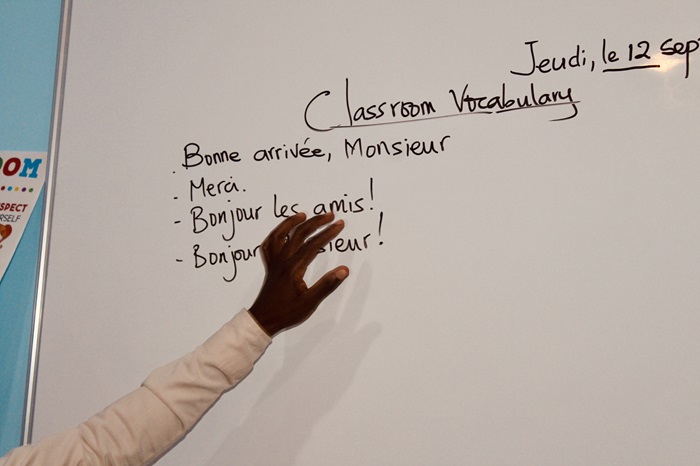 Jeudi, le 12 Sept
Classroom Vocabulary
. Bonne arrivée, Monsieur
- Merci.
- Bonjour les amis!
- Bonjour sieur!
OM
SPECT
RSELF